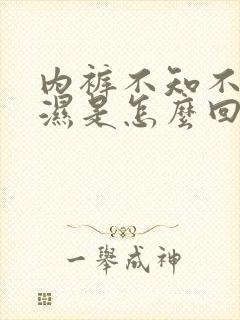 内裤不知不
濕是怎麼回
一舉成神